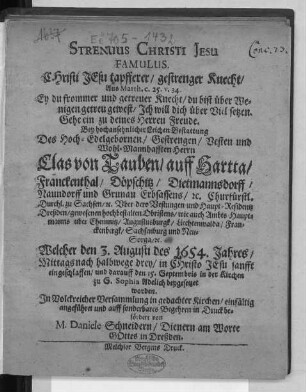 STRENUUS CHRISTI JESU
FAMULUS,
Christi JEsu tapfferer/ gestrenger Knecht/
Aus Matth. c. 25. v. 34.
Ey du frommer und getreuer Knecht/ du bist über We-
nigen getreu gewest/ Ich will dich über Vil setzen.
Gehe ein zu deines Herren Freude.
Bey hochansehnlicher Leichen Bestattung
Des Hoch-Edelgebornen/ Gestrengen/ Vesten und
Wohl-Mannhafften Herrn
Clas von Tauben/ auff Hartta/
Franckenthal/ Döpschitz/ Dietmannsdorff/
Naundorff und Grunau Erbsassens/ &c. Churfürstl.
Durchl. zu Sachsen/ &c. Über dero Vestungen und Haupt-Residentz
Dreßden/ gewesenen hochbestalten Obristens/ wie auch Ambts-Haupt-
manns über Chemnitz/ Augustusburgk/ Liechtenwalda/ Fran-
ckenbergk/ Sachsenburg und Neu-
Sorga/ &c.
Welcher den 3. August des 1654. Jahres/
Mittags nach halbwege drey/ in Christo JEsu sanffte
eingeschlaffen/ und darauff den 15. Septembris in der Kirchen
zu S. Sophia Adelich beygesetzet
worden.
In Volckreicher Versammlung in gedachter Kirchen/ einfältig
angeführet und auff sonderbares Begehren in Druck be-
fördert von
M. Daniele Schneidern/ Dienern am Worte
GOttes in Dreßden.
Melchior Bergens Druck.